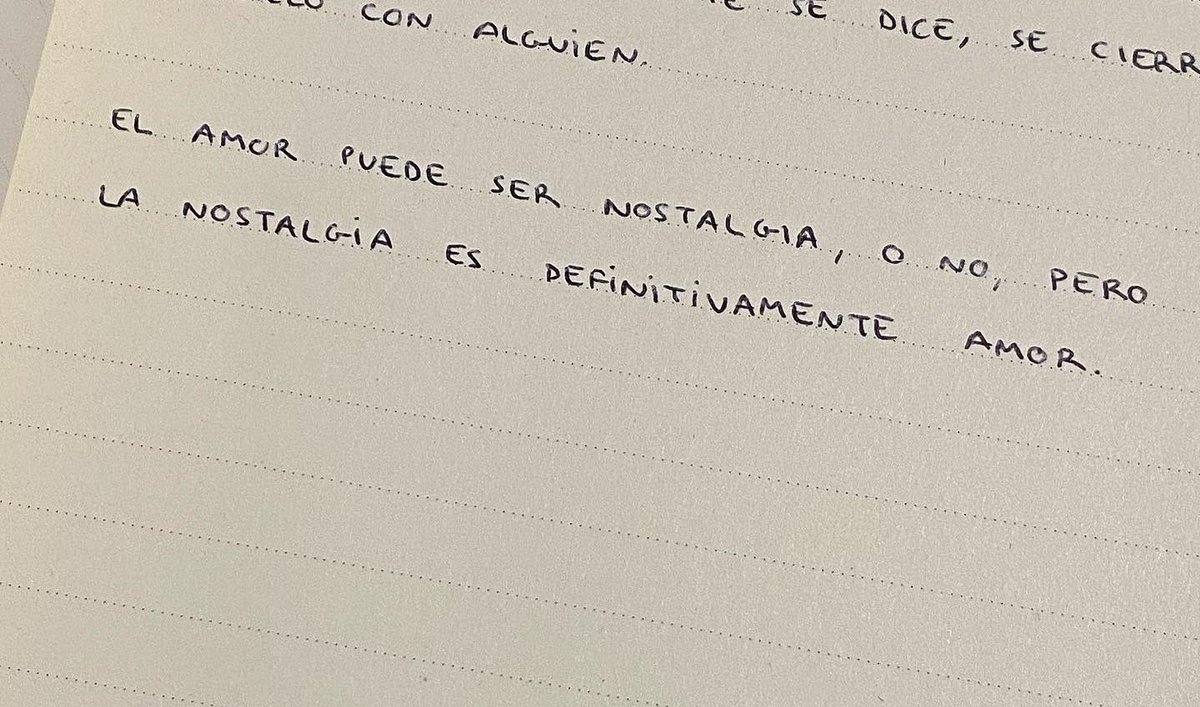 SE DICE, SE CIERR
CON ALGUiEN.
EL AMOR PUEDE SER NOSTALGIA, O NO, PERO
LA NOSTALGiA ES DEFiNiTiVAMENTE AMOR.